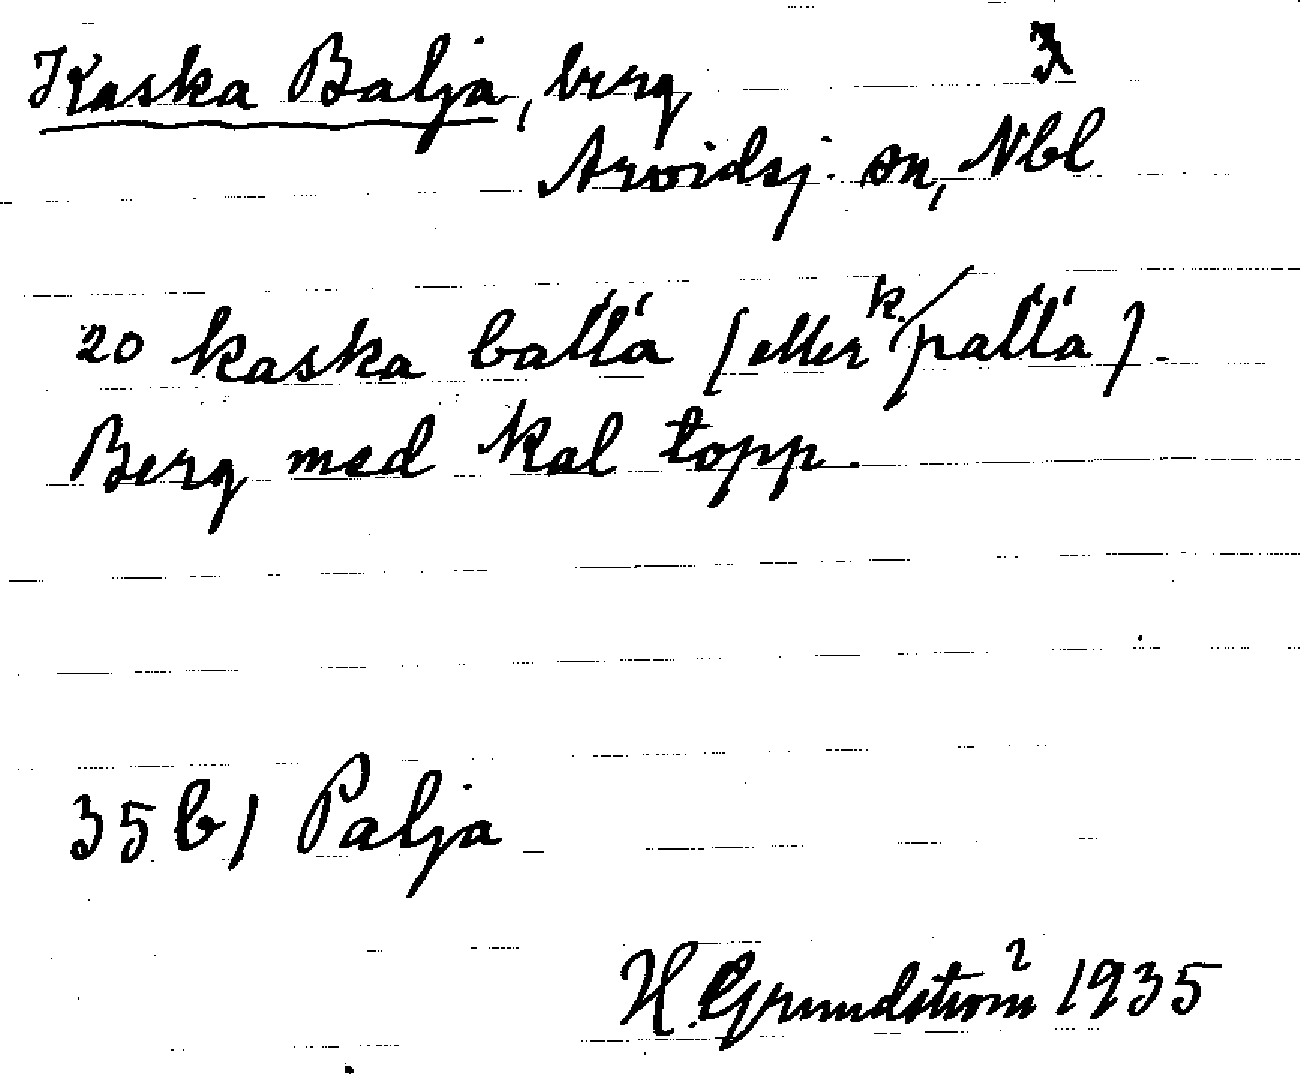 Kaska Balja, berg 3
Arvidsj. sn, Nbl
20 kaska balla (eller k. palla).
Berg med kal topp.
35 b) Palja
H. Grundström 1935